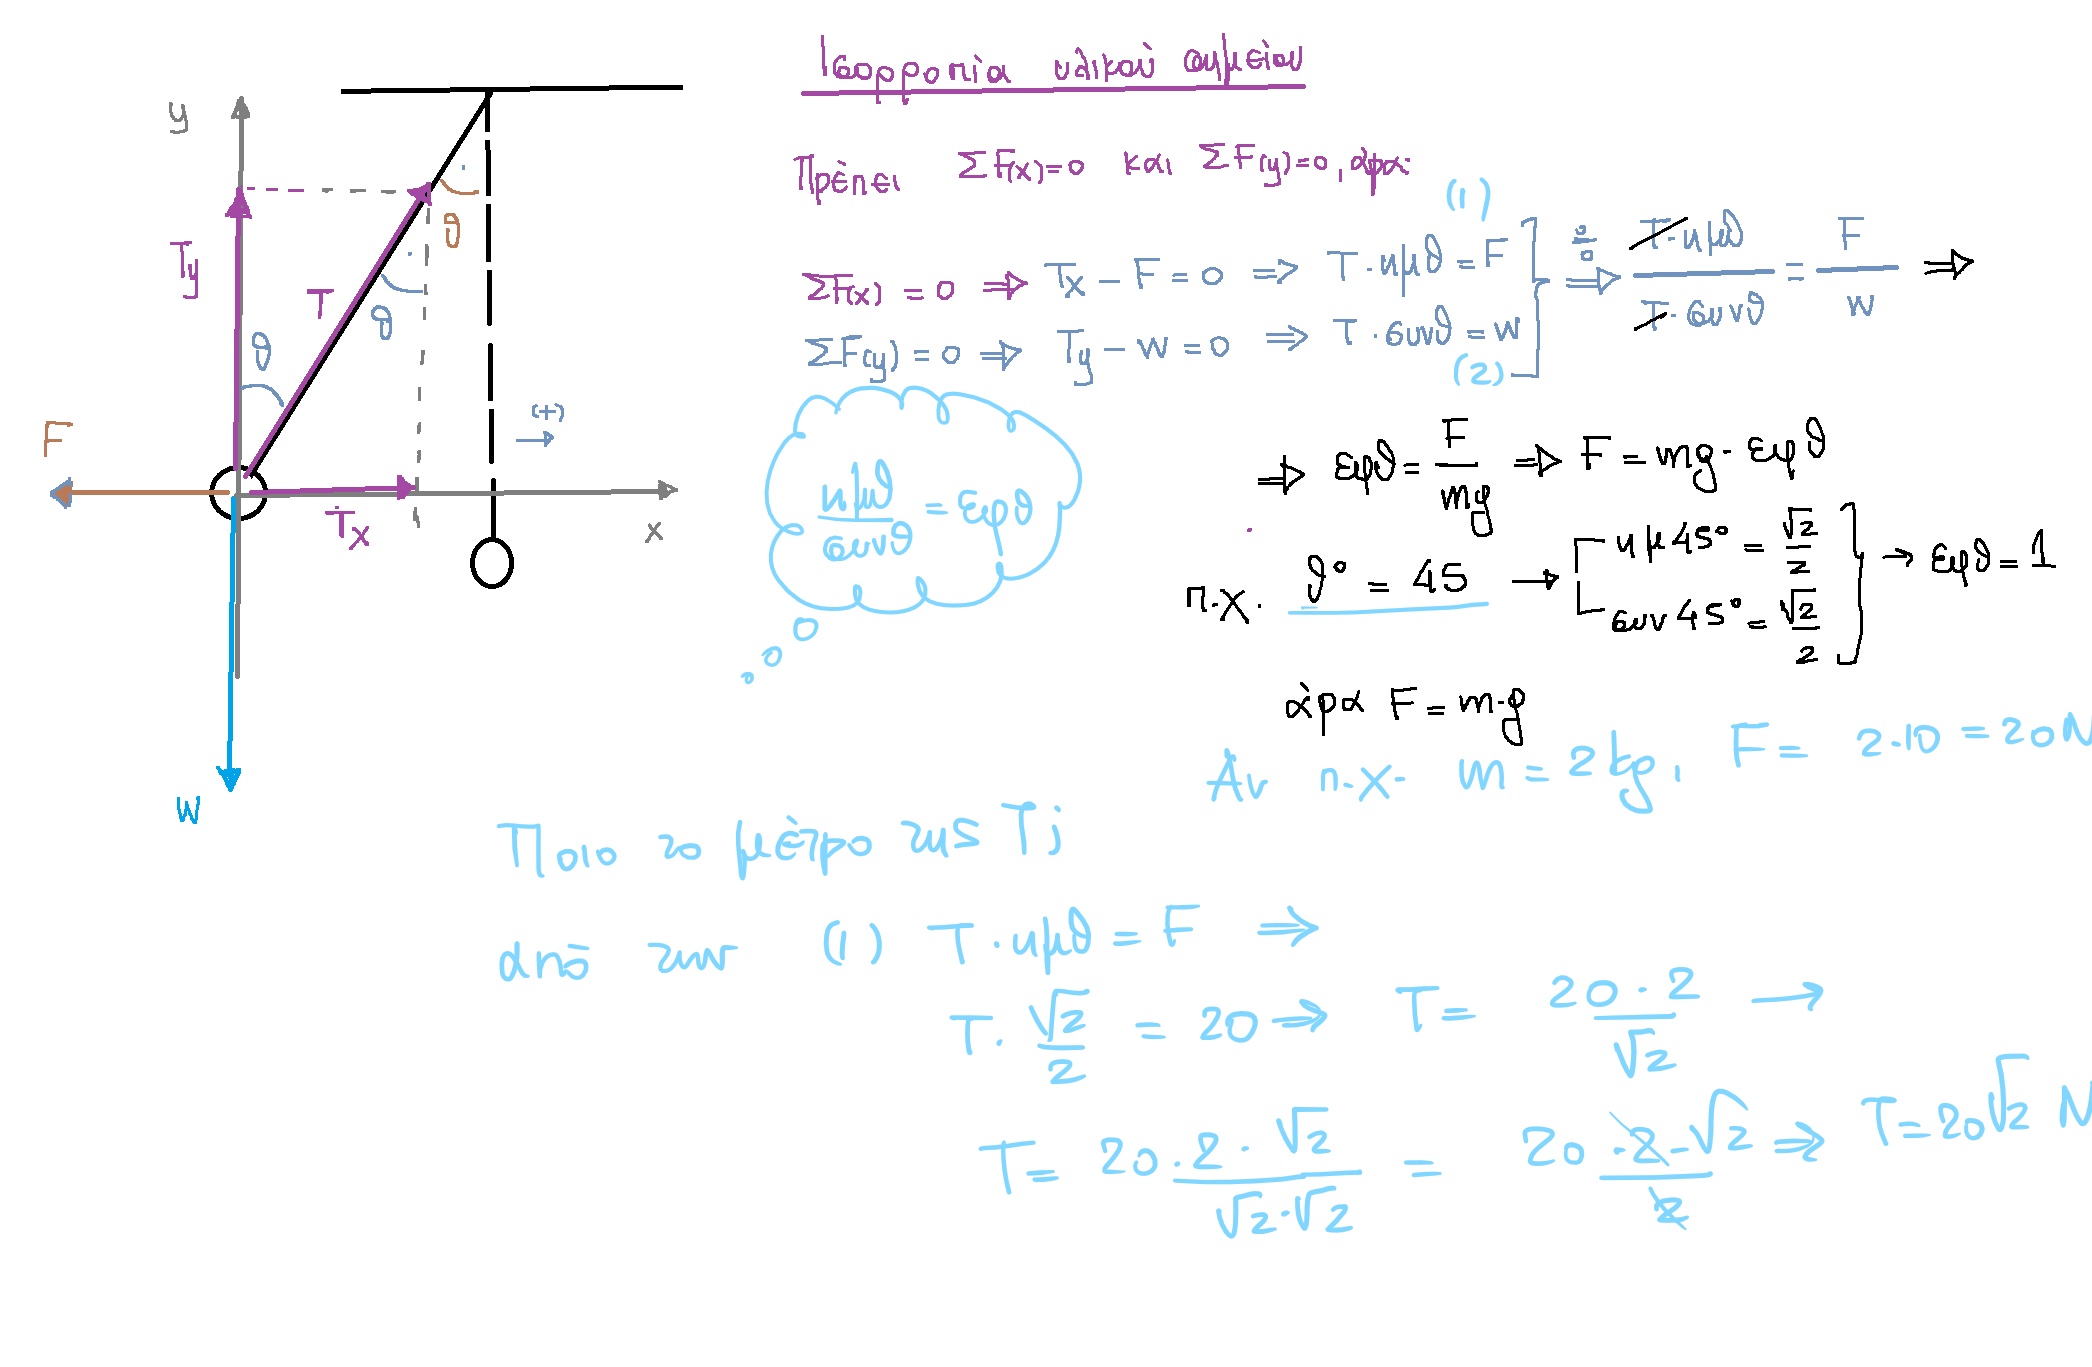 Ισορροπία υλικού σημείου
Πρέπει ΣF(x)=0 και ΣF(y)=0, άρα:
(1)
ΣF(x) = 0 ⇒ Tx − F = 0 ⇒ T · ημθ = F
ΣF(y) = 0 ⇒ Ty − w = 0 ⇒ T · συνθ = w
(2)
⇒ T·ημθ / T·συνθ = F / w ⇒
⇒ εφθ = F / mg ⇒ F = mg · εφθ
ημθ / συνθ = εφθ
π.χ. θ° = 45 → ημ45° = √2 / 2
συν45° = √2 / 2
→ εφθ = 1
άρα F = m·g
Αν π.χ. m = 2kg, F = 2·10 = 20N
Ποιο το μέτρο της T;
από την (1) T · ημθ = F ⇒
T · √2 / 2 = 20 ⇒ T = 20 · 2 / √2 →
T = 20 · 2 · √2 / √2 · √2 = 20 · 2 · √2 / 2 ⇒ T = 20√2 N
y
Ty
T
θ
θ
θ
(+)
F
Tx
x
w